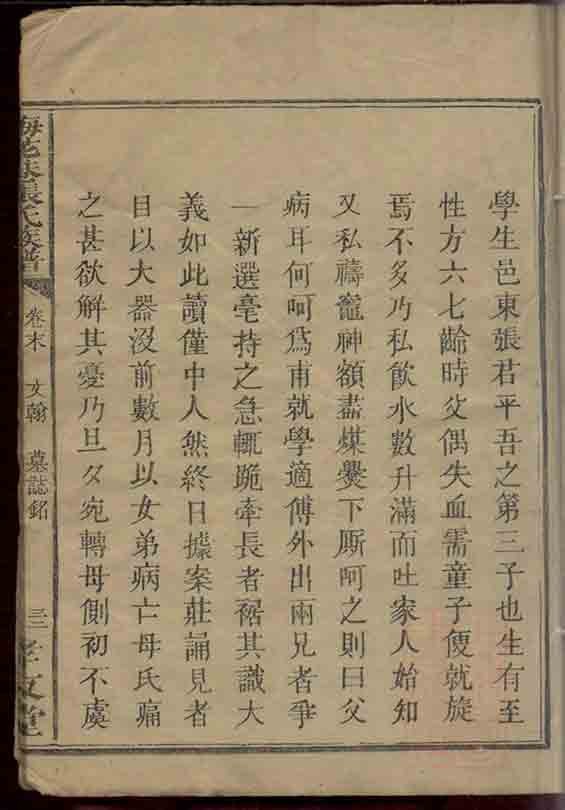 學生邑東張君平吾之第三子也生有至
性方六七齡時父偶失血需童子便就旋
焉不多乃私飲水數升滿而吐家人始知
又私禱竈神額盡煤爨下厮呵之則曰父
病耳何呵爲甫就學適傅外出兩兄者爭
一新選毫持之急輒跪牽長者裾其識大
義如此讀僅中人然終日據案莊誦見者
目以大器沒前數月以女弟病亡母氏痛
之甚欲解其憂乃旦夕宛轉母側初不虞
張氏族譜
卷末 文翰 墓誌銘
三二
孝友堂